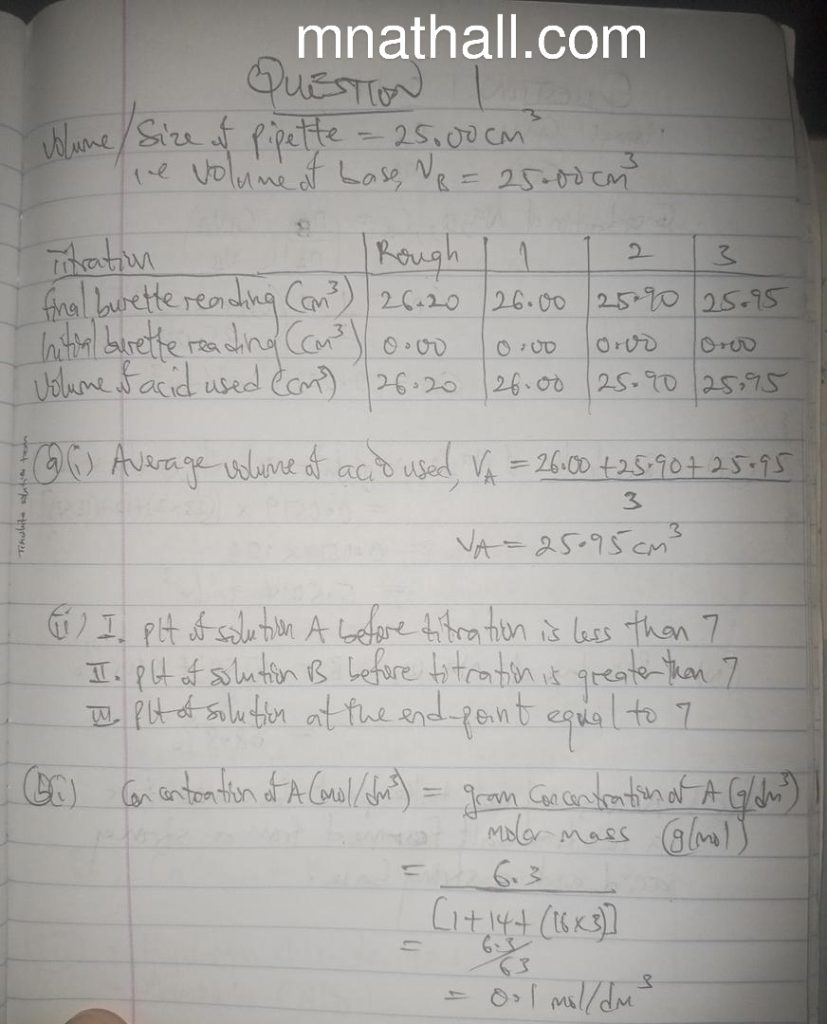 mnathall.com
QUESTION 1
Volume/Size of pipette = 25.00cm³
i.e Volume of base, VB = 25.00cm³
Titration | Rough | 1 | 2 | 3
final burette reading (cm³) | 26.20 | 26.00 | 25.90 | 25.95
Initial burette reading (cm³) | 0.00 | 0.00 | 0.00 | 0.00
Volume of acid used (cm³) | 26.20 | 26.00 | 25.90 | 25.95
(a)(i) Average volume of acid used, VA = 26.00 + 25.90 + 25.95
3
VA = 25.95cm³
(ii) I. pH of solution A before titration is less than 7
II. pH of solution B before titration is greater than 7
III. pH of solution at the end-point equal to 7
(b)(i) Concentration of A (mol/dm³) = gram concentration of A (g/dm³)
molar mass (g/mol)
= 6.3
[1+14+(16×3)]
= 6.3/63
= 0.1 mol/dm³